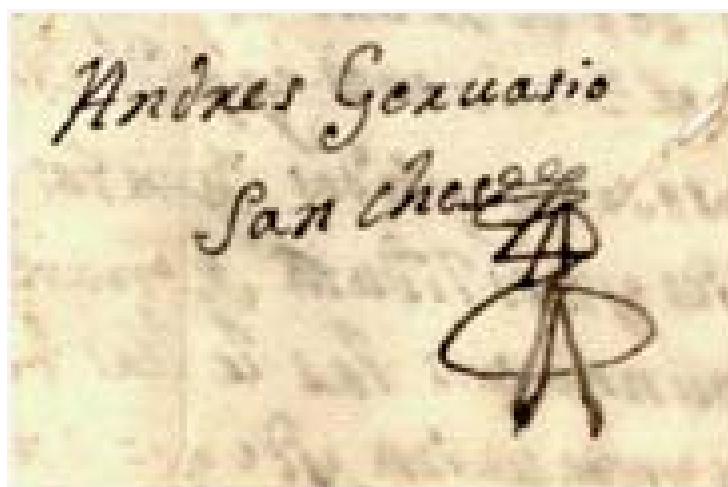 Andres Geruasio
San ches